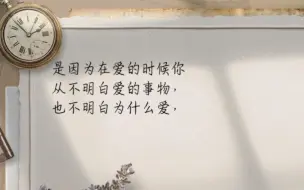 是因为在爱的时候你
从不明白爱的事物，
也不明白为什么爱，